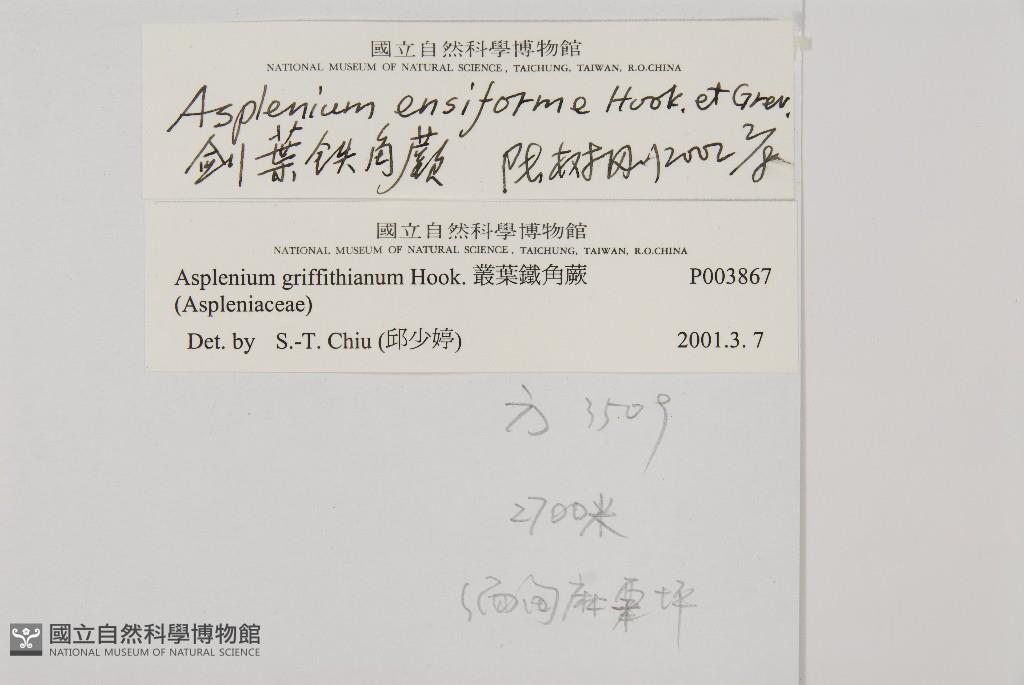 國立自然科學博物館
NATIONAL MUSEUM OF NATURAL SCIENCE, TAICHUNG, TAIWAN, R.O.CHINA
Asplenium ensiforme Hook. et Grev.
剑葉铁角蕨 陆树刚 2002 2/8
國立自然科學博物館
NATIONAL MUSEUM OF NATURAL SCIENCE, TAICHUNG, TAIWAN, R.O.CHINA
Asplenium griffithianum Hook. 叢葉鐵角蕨 P003867
(Aspleniaceae)
Det. by S.-T. Chiu (邱少婷) 2001.3. 7
方 3509
2700米
缅甸麻栗坪
國立自然科學博物館
NATIONAL MUSEUM OF NATURAL SCIENCE